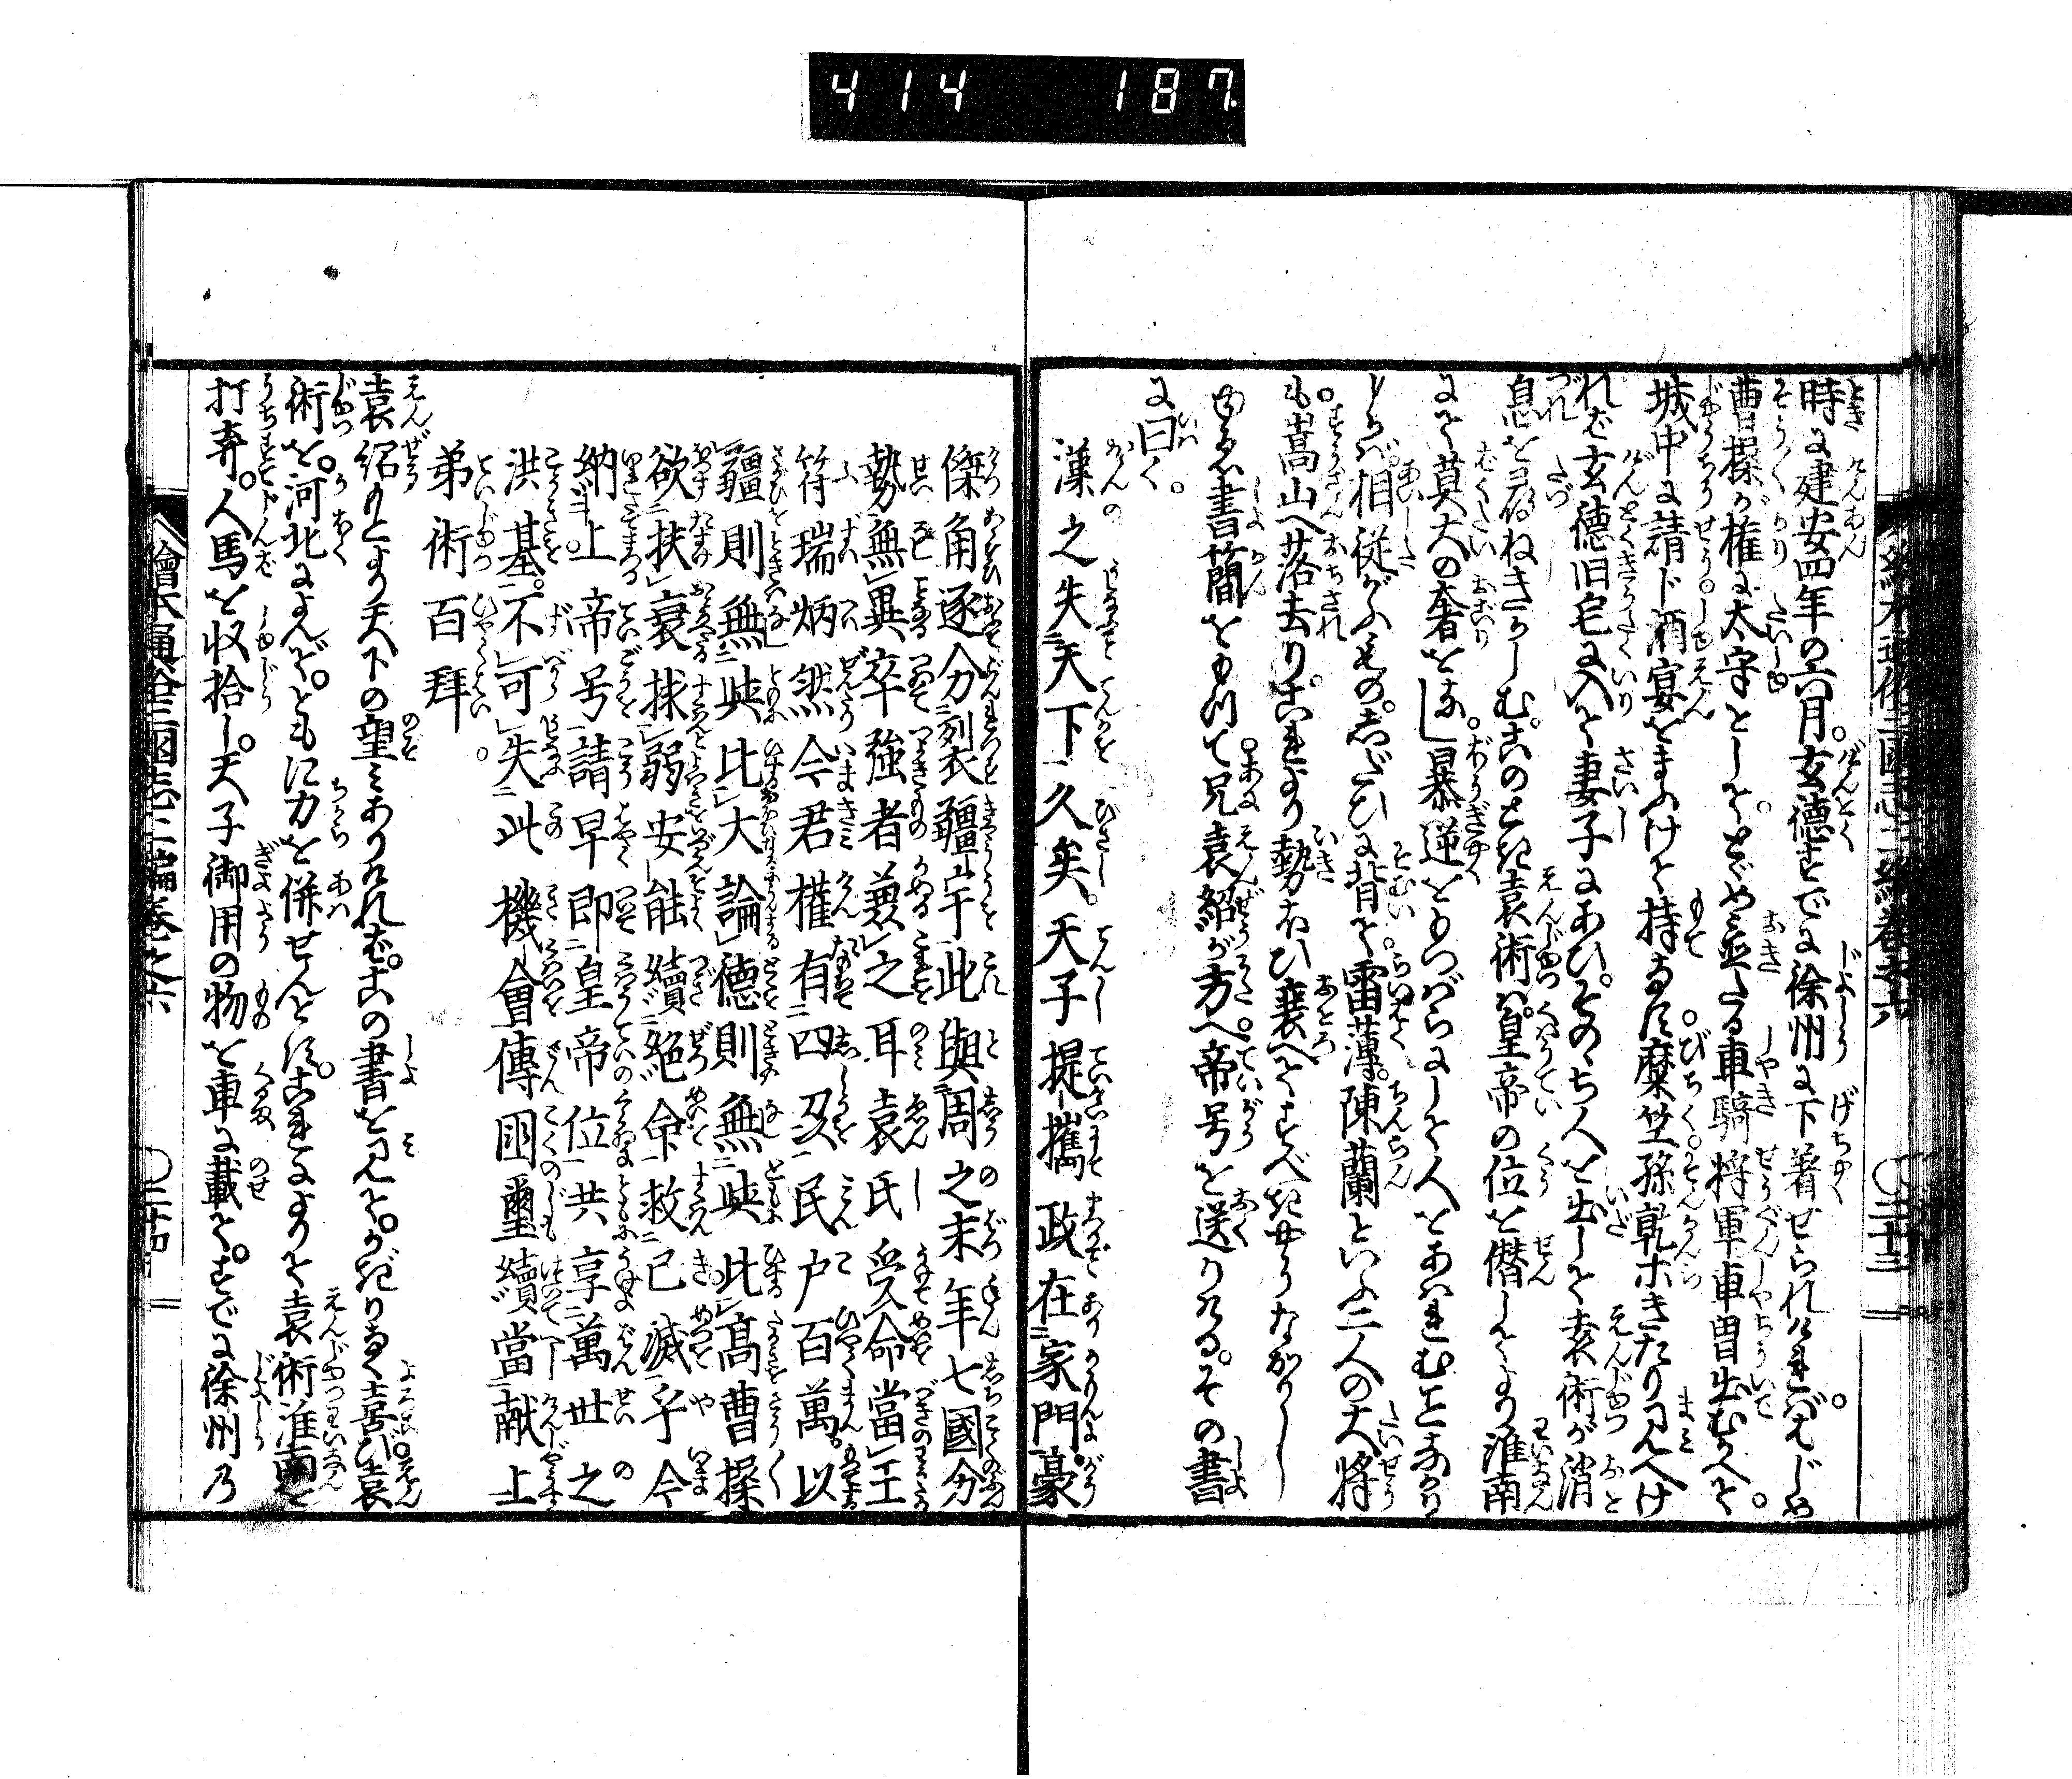 414 187
時に建安四年の六月。玄徳すでに徐州に下着せられければ。はじめ
曹操が権に太守として。とゞめ置たる車騎将軍車冑出むかへて。
城中に請じ酒宴をまふけて待なす。糜竺孫乾ホきたり見へけ
れば玄徳旧宅に入て妻子にあひ。そのゝち人を出して袁術が消
息を尋ねきかしむ。このとき袁術は。皇帝の位を僭してより淮南
にて莫大の奢をなし。暴逆をもつぱらにして人をあはれむことなけ
れば。相従がふもの。しだひに背て雷薄。陳蘭といふ二人の大将
も。嵩山へ落去り。これより勢ひ衰へてすべきやうなかりし
ゆゑ書簡をもつて。兄袁紹が方へ。帝号を送りける。その書
に曰く。
漢之失天下久矣。天子提攜政在家門。豪
傑角逐分裂疆宇。此與周之末年七國分
勢無異卒強者兼之耳袁氏受命當王
符瑞炳然今君權有四州民戸百萬。以
疆則無與比大論德則無與比高曹操
欲扶衰拯弱安能續絶命救已滅乎今
納上帝号請早即皇帝位共享萬世之
洪基。不可失此機會傳國璽續當獻上
弟術百拜。
袁紹もとより天下の望みありければ。この書を見て。かぎりなく喜び。袁
術を。河北によんで。ともに力を併せんとす。これによりて袁術淮南を
打弃。人馬を収拾し。天子御用の物を車に載て。すでに徐州乃
繪本通俗三國志二編巻之六 〇二十三
繪本通俗三國志二編巻之六 〇二十四